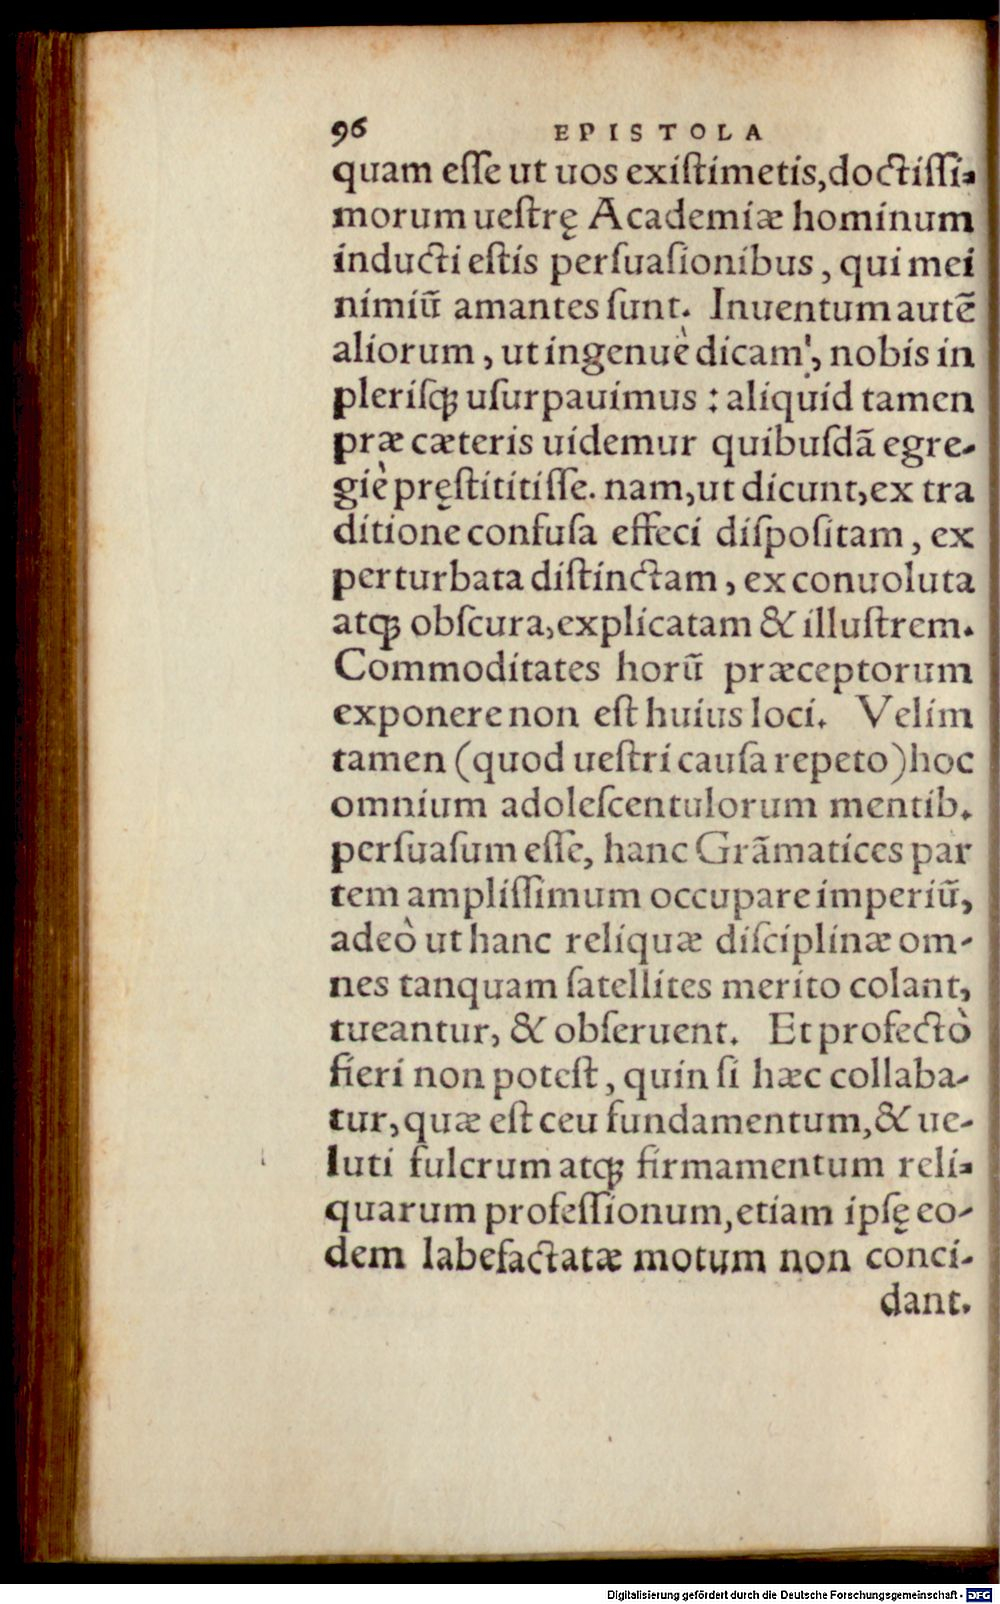 96 EPISTOLA
quam eſſe ut uos exiſtimetis,doctiſſi-
morum ueſtrę Academiæ hominum
inducti eſtis perſuaſionibus, qui mei
nimiũ amantes ſunt. Inuentum autẽ
aliorum, ut ingenuè dicam, nobis in
pleriſꝗ uſurpauimus : aliquid tamen
præ cæteris uidemur quibuſdã egre-
giè pręſtititiſſe. nam,ut dicunt,ex tra
ditione confuſa effeci diſpoſitam, ex
perturbata diſtinctam, ex conuoluta
atꝗ obſcura,explicatam & illuſtrem.
Commoditates horũ præceptorum
exponere non eſt huius loci. Velim
tamen (quod ueſtri cauſa repeto)hoc
omnium adoleſcentulorum mentib.
perſuaſum eſſe, hanc Grãmatices par
tem ampliſſimum occupare imperiũ,
adeò ut hanc reliquæ diſciplinæ om-
nes tanquam ſatellites merito colant,
tueantur, & obſeruent. Et profectò
fieri non poteſt, quin ſi hæc collaba-
tur,quæ eſt ceu fundamentum,& ue-
luti fulcrum atꝗ firmamentum reli-
quarum profeſſionum,etiam ipſę eo-
dem labefactatæ motum non conci-
dant.
Digitalisierung gefördert durch die Deutsche Forschungsgemeinschaft - DFG